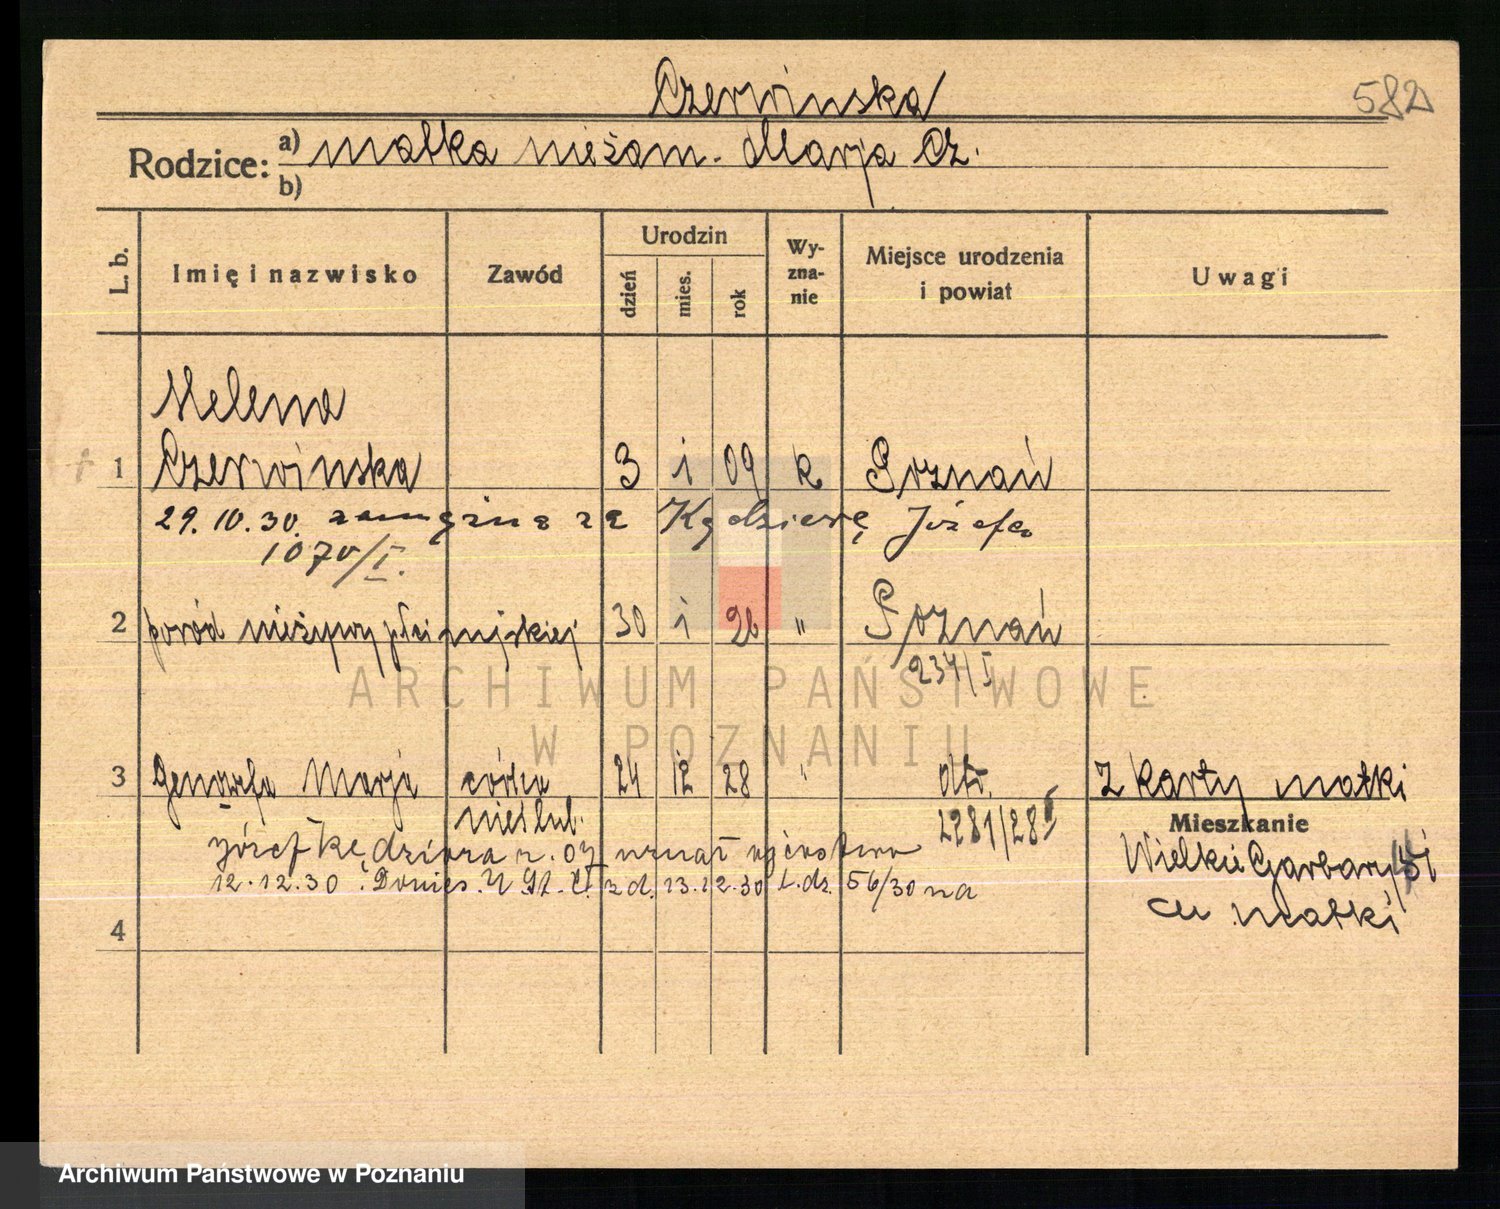 Czerwinska
582
Rodzice: a) matka niezam. Marja Cz.
b)
L. b.
Imię i nazwisko
Zawód
Urodzin
dzień
mies.
rok
Wy-
zna-
nie
Miejsce urodzenia
i powiat
Uwagi
Helena
1 Czerwinska 3 i 09 k Poznań
29. 10. 30. zamężna za Kędziorę Józefa
1070/I.
2 poród nieżywy płci męskiej 30 i 26 " Poznań
234/I
ARCHIWUM PAŃSTWOWE
W POZNANIU
3 Genowefa Marja córka 24 12 28 " dto. Z karty matki
nieślub. 2281/28 Mieszkanie
Józef Kędziora r. 07 uznał ojcostwo Wielkie Garbary
12.12.30. Donies. U. St. C. z d. 13.12.30 l. dz. 56/30 na
matki
4
Archiwum Państwowe w Poznaniu